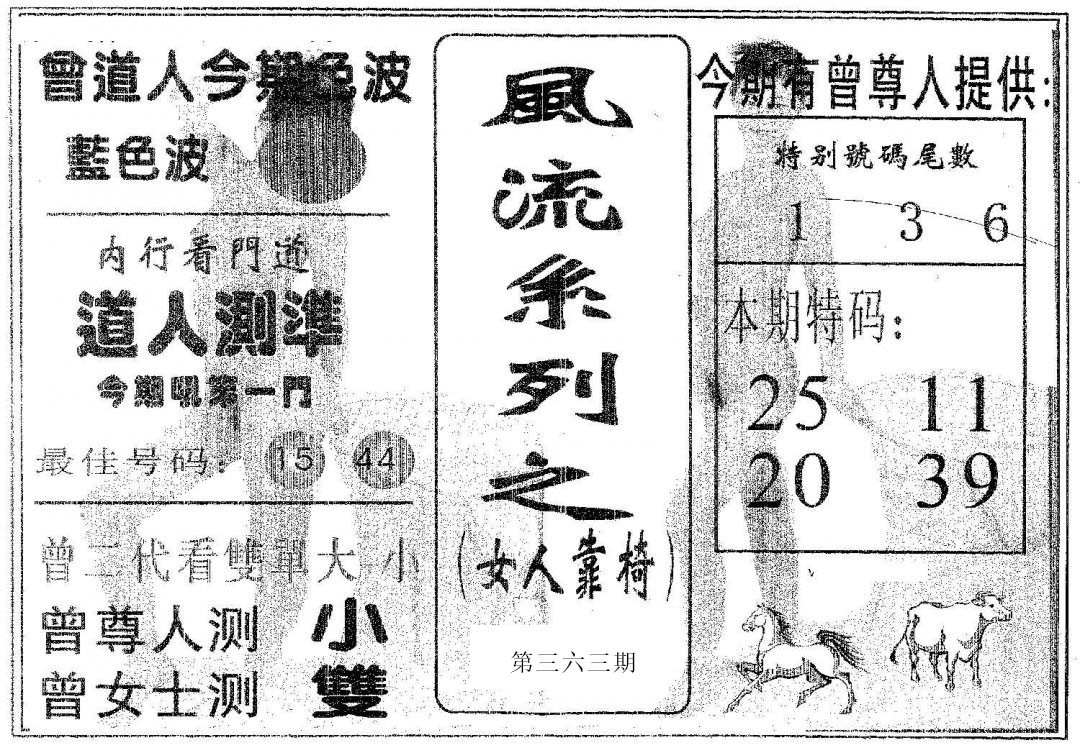 曾道人今期色波
藍色波
內行看門道
道人測準
今期吼第一門
最佳号码：15 44
曾二代看雙單大小
曾尊人测 小
曾女士测 雙
風流系列之
(女人靠椅)
第三六三期
今期有曾尊人提供:
特别號碼尾數
1 3 6
本期特码:
25 11
20 39